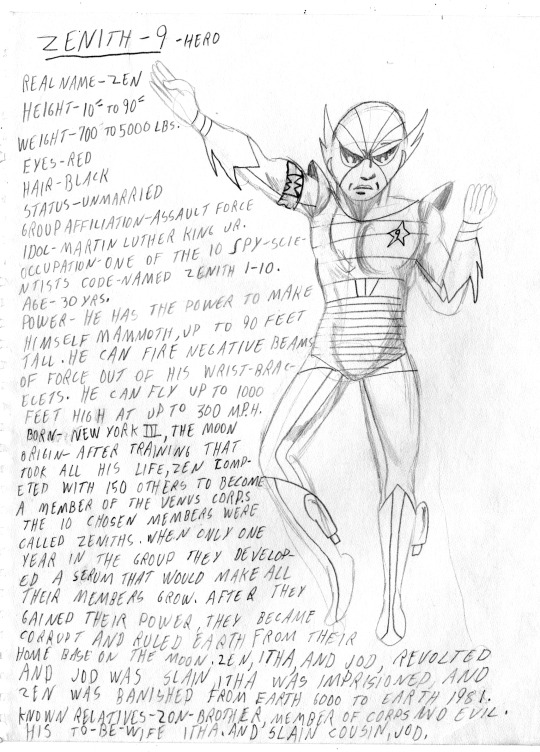 ZENITH-9-HERO
REAL NAME-ZEN
HEIGHT-10" TO 90"
WEIGHT-700 TO 5000 LBS.
EYES-RED
HAIR-BLACK
STATUS-UNMARRIED
GROUP AFFILIATION-ASSAULT FORCE
IDOL-MARTIN LUTHER KING JR.
OCCUPATION-ONE OF THE 10 SPY-SCIE-
NTISTS CODE-NAMED ZENITH 1-10.
AGE-30 YRS.
POWER-HE HAS THE POWER TO MAKE
HIMSELF MAMMOTH, UP TO 90 FEET
TALL. HE CAN FIRE NEGATIVE BEAMS
OF FORCE OUT OF HIS WRIST-BRAC-
ELETS. HE CAN FLY UP TO 1000
FEET HIGH AT UP TO 300 M.P.H.
BORN-NEW YORK III, THE MOON
ORIGIN-AFTER TRAINING THAT
TOOK ALL HIS LIFE, ZEN COMP-
ETED WITH 150 OTHERS TO BECOME
A MEMBER OF THE VENUS CORPS
THE 10 CHOSEN MEMBERS WERE
CALLED ZENITHS. WHEN ONLY ONE
YEAR IN THE GROUP THEY DEVELOP-
ED A SERUM THAT WOULD MAKE ALL
THEIR MEMBERS GROW. AFTER THEY
GAINED THEIR POWER, THEY BECAME
CORRUPT AND RULED EARTH FROM THEIR
HOME BASE ON THE MOON. ZEN, ITHA, AND JOD, REVOLTED
AND JOD WAS SLAIN, ITHA WAS IMPRISIONED, AND
ZEN WAS BANISHED FROM EARTH 6000 TO EARTH 1981.
KNOWN RELATIVES-ZON-BROTHER, MEMBER OF CORPS AND EVIL.
HIS TO-BE-WIFE ITHA. AND SLAIN COUSIN, JOD.